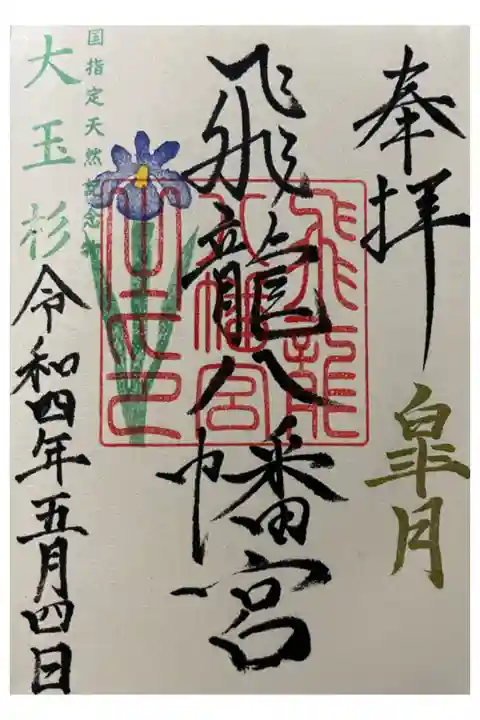 奉拝
皐月
飛龍八幡宮
飛龍
八幡宮
国指定天然記念
大玉杉
令和四年五月四日